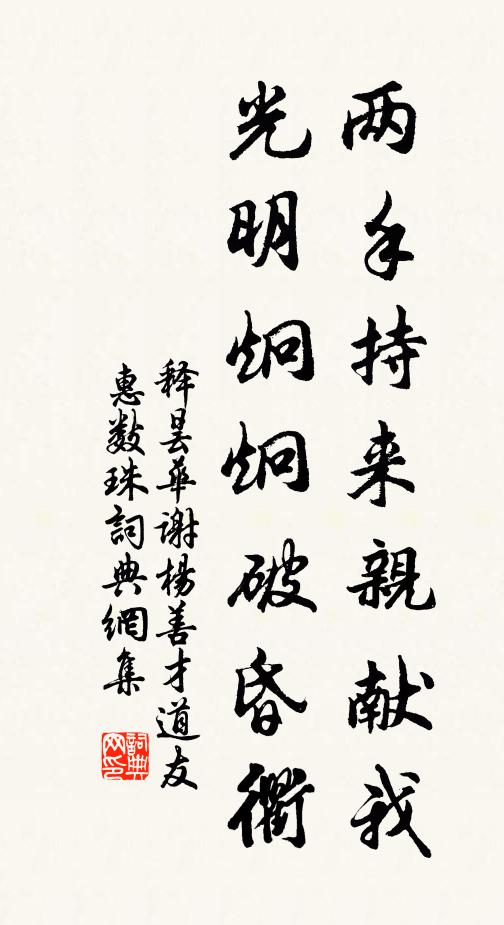 两手持来親献我
光明炯炯破昏衢
释昙華謝楊善才道友
惠数珠詞典網集
詞典网印